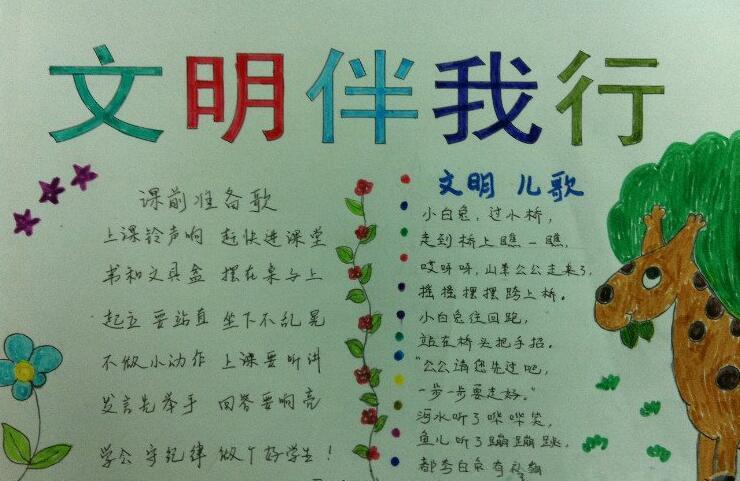 文明伴我行
课前准备歌
上课铃声响 赶快进课堂
书和文具盒 摆在桌与上
起立要站直 坐下不乱晃
不做小动作 上课要听讲
发言先举手 回答要响亮
学会守纪律 做个好学生！
文明 儿歌
小白兔，过小桥，
走到桥上瞧一瞧，
哎呀呀，山羊公公走来了，
摇摇摆摆跨上桥。
小白兔往回跑，
站在桥头把手招。
"公公请您先过吧，
一步一步要走好。"
河水听了哗哗笑，
鱼儿听了蹦蹦跳，
都夸白兔有礼貌